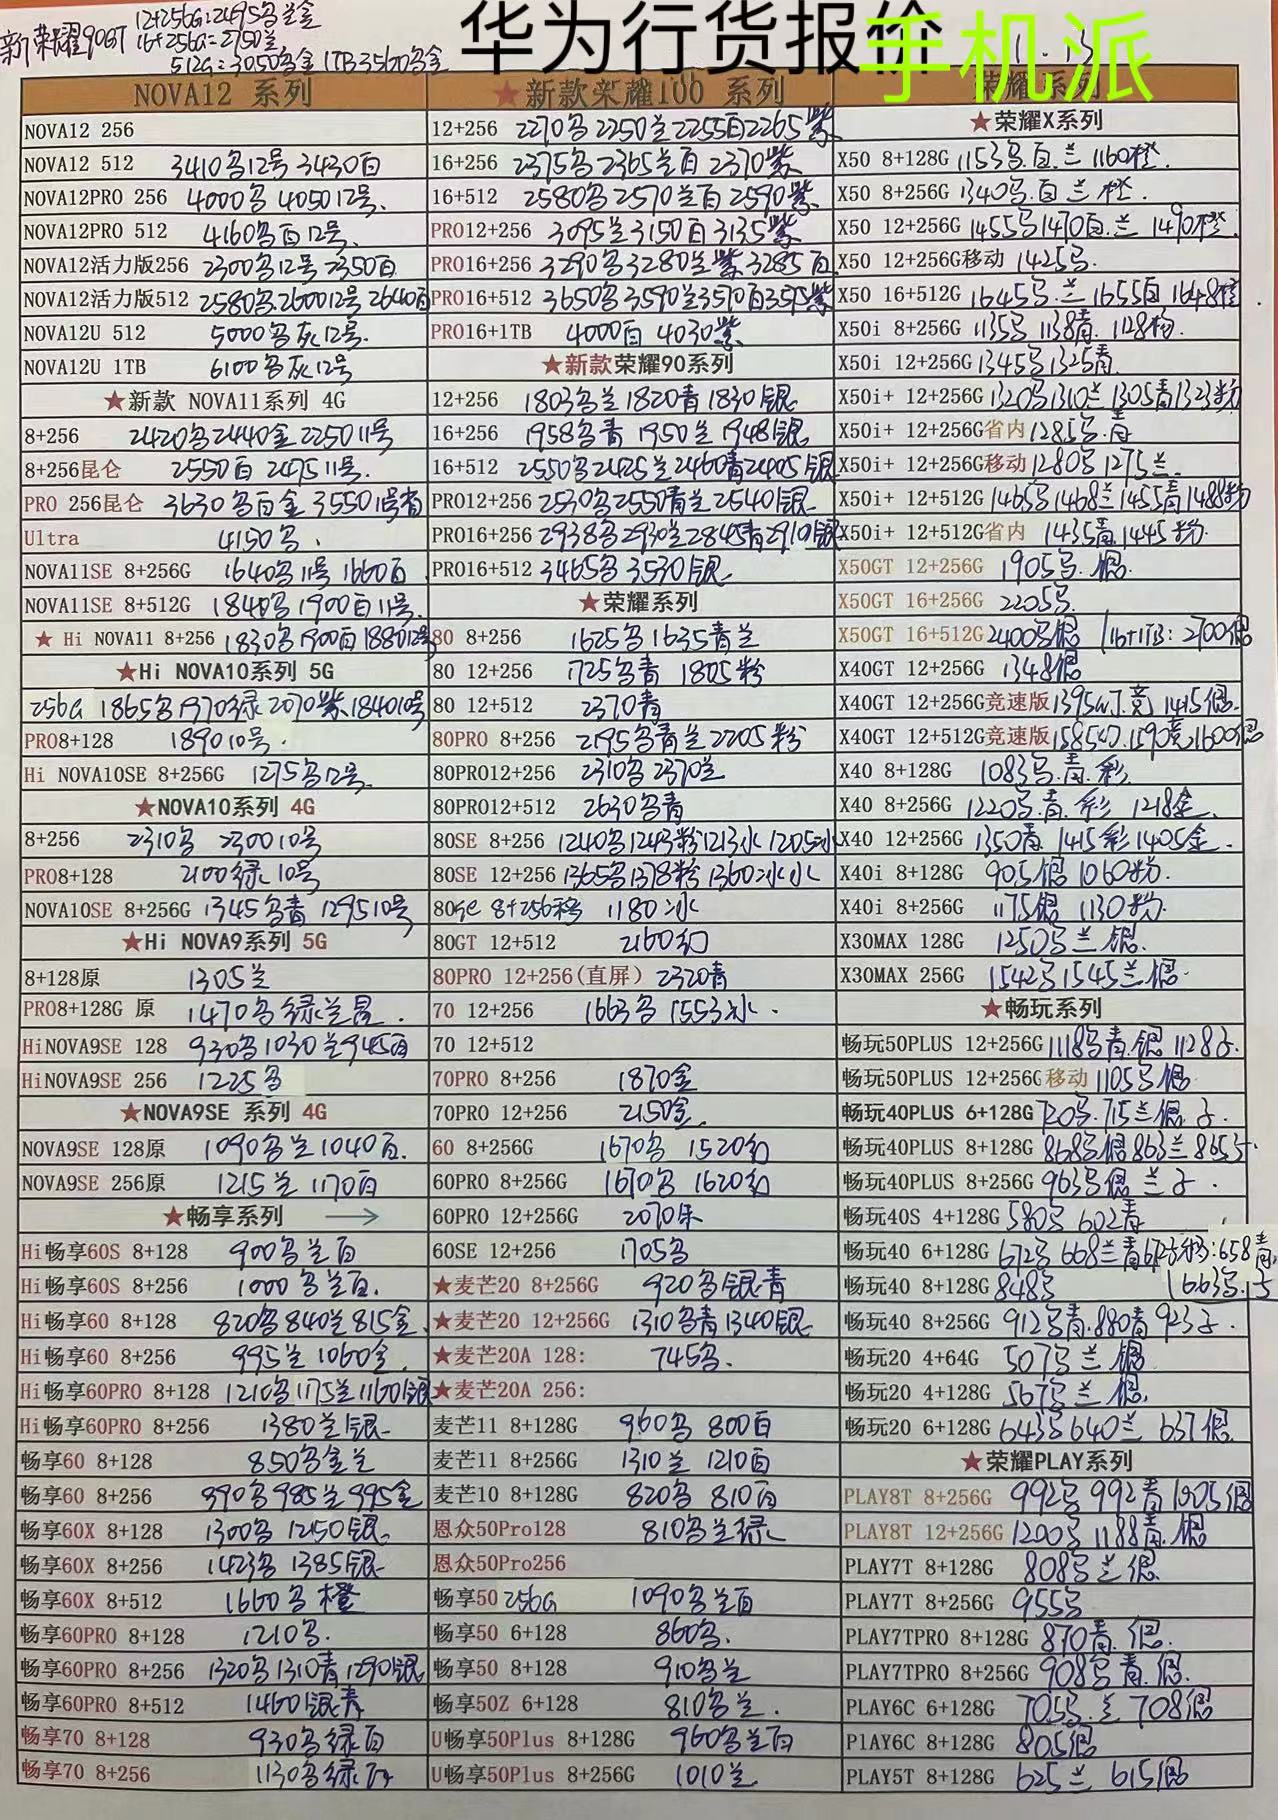 华为行货报价
手机派
1.3
新荣耀90GT 12+256G:2495鸟兰金
16+256G=2750兰
512G:3050鸟金 1TB3560鸟金
NOVA12 系列
NOVA12 256
NOVA12 512 3410鸟12号 3430白
NOVA12PRO 256 4000鸟 4050 12号
NOVA12PRO 512 4160鸟白12号
NOVA12活力版256 2300鸟12号 2350白
NOVA12活力版512 2580鸟2600 12号 2640白
NOVA12U 512 5000鸟灰12号
NOVA12U 1TB 6100鸟灰12号
★新款 NOVA11系列 4G
8+256 2420鸟2440金 2250 11号
8+256昆仑 2550白 2495 11号
PRO 256昆仑 3630鸟白金 3550 11号青
Ultra 4150鸟
NOVA11SE 8+256G 1640鸟11号 1660白
NOVA11SE 8+512G 1840鸟1900白11号
★ Hi NOVA11 8+256 1830鸟1900白1880 12号
★Hi NOVA10系列 5G
256G 1865鸟1970绿2070紫1840 10号
PRO8+128 1890 10号
Hi NOVA10SE 8+256G 1275鸟12号
★NOVA10系列 4G
8+256 2310鸟 2300 10号
PRO8+128 2100绿10号
NOVA10SE 8+256G 1345鸟青 1295 10号
★Hi NOVA9系列 5G
8+128原 1305兰
PRO8+128G 原 1470鸟绿兰
HiNOVA9SE 128 930鸟1030兰945白
HiNOVA9SE 256 1225鸟
★NOVA9SE 系列 4G
NOVA9SE 128原 1090鸟兰1040白
NOVA9SE 256原 1215兰 1170白
★畅享系列 →
Hi畅享60S 8+128 900鸟兰白
Hi畅享60S 8+256 1000鸟兰白
Hi畅享60 8+128 820鸟840兰815金
Hi畅享60 8+256 995兰1060金
Hi畅享60PRO 8+128 1210鸟1175兰1160银
Hi畅享60PRO 8+256 1380兰银
畅享60 8+128 850鸟金兰
畅享60 8+256 990鸟985兰995金
畅享60X 8+128 1300鸟 1250银
畅享60X 8+256 1423鸟 1385银
畅享60X 8+512 1660鸟橙
畅享60PRO 8+128 1210鸟
畅享60PRO 8+256 1320鸟1310青1290银
畅享60PRO 8+512 1460银青
畅享70 8+128 930鸟绿白
畅享70 8+256 1130鸟绿
★新款荣耀100 系列
12+256 2270鸟2250兰2255白2265紫
16+256 2375鸟2365兰白 2370紫
16+512 2580鸟2570兰白 2590紫
PRO12+256 3095兰3150白3135紫
PRO16+256 3290鸟3280兰紫3285白
PRO16+512 3650鸟3590兰3570白3595紫
PRO16+1TB 4000白 4030紫
★新款荣耀90系列
12+256 1803鸟兰1820青1830银
16+256 1958鸟青 1950兰1948银
16+512 2550鸟2425兰2460青2405银
PRO12+256 2530鸟2550青兰2540银
PRO16+256 2938鸟2930兰2845青2910银
PRO16+512 3465鸟3530银
★荣耀系列
80 8+256 1625鸟1635青兰
80 12+256 1725鸟青 1805粉
80 12+512 2370青
80PRO 8+256 2195鸟青兰2205粉
80PRO12+256 2310鸟2370兰
80PRO12+512 2630鸟青
80SE 8+256 1240鸟1243粉1213冰 1205冰
80SE 12+256 1365鸟1378粉1360冰
80se 8+256移 1180冰
80GT 12+512 2160幻
80PRO 12+256(直屏) 2320青
70 12+256 1663鸟1553冰
70 12+512
70PRO 8+256 1870金
70PRO 12+256 2150金
60 8+256G 1670鸟 1520幻
60PRO 8+256G 1670鸟 1620幻
60PRO 12+256G 2070朱
60SE 12+256 1705鸟
★麦芒20 8+256G 920鸟银青
★麦芒20 12+256G 1310鸟青1340银
★麦芒20A 128: 745鸟
★麦芒20A 256:
麦芒11 8+128G 960鸟 800白
麦芒11 8+256G 1310兰 1210白
麦芒10 8+128G 820鸟 810白
恩众50Pro128 810鸟兰绿
恩众50Pro256
畅享50 256G 1090鸟兰白
畅享50 6+128 860鸟
畅享50 8+128 910鸟兰
畅享50Z 6+128 810鸟兰
U畅享50Plus 8+128G 960鸟兰白
U畅享50Plus 8+256G 1010兰
荣耀系列
★荣耀X系列
X50 8+128G 1153鸟白兰 1160橙
X50 8+256G 1340鸟白兰橙
X50 12+256G 1455鸟1470白兰 1490橙
X50 12+256G移动 1425鸟
X50 16+512G 1645鸟兰1655白1648橙
X50i 8+256G 1135鸟1138青 1128粉
X50i 12+256G 1345鸟1325青
X50i+ 12+256G 1320鸟1310兰1305青1323粉
X50i+ 12+256G省内 1285鸟青
X50i+ 12+256G移动 1280鸟1275兰
X50i+ 12+512G 1465鸟1468兰1455青1488粉
X50i+ 12+512G省内 1435青1445粉
X50GT 12+256G 1905鸟银
X50GT 16+256G 2205鸟
X50GT 16+512G 2400鸟银 16+1TB:2700银
X40GT 12+256G 1348银
X40GT 12+256G竞速版 1395幻竞 1415银
X40GT 12+512G竞速版 1585幻1590竞1600银
X40 8+128G 1083鸟青彩
X40 8+256G 1220鸟青彩 1218金
X40 12+256G 1350青 1415彩1405金
X40i 8+128G 905银 1060粉
X40i 8+256G 1175银 1130粉
X30MAX 128G 1250鸟兰银
X30MAX 256G 1542鸟1545兰银
★畅玩系列
畅玩50PLUS 12+256G 1118鸟青银 1128子
畅玩50PLUS 12+256G移动 1105鸟银
畅玩40PLUS 6+128G 720鸟715兰银子
畅玩40PLUS 8+128G 868鸟银863兰865子
畅玩40PLUS 8+256G 963鸟银兰子
畅玩40S 4+128G 580鸟 602青
畅玩40 6+128G 672鸟668兰青672子移:658青
畅玩40 8+128G 848鸟 663鸟
畅玩40 8+256G 912鸟青880青923子
畅玩20 4+64G 507鸟兰银
畅玩20 4+128G 567鸟兰银
畅玩20 6+128G 643鸟640兰 637银
★荣耀PLAY系列
PLAY8T 8+256G 992鸟992青1005银
PLAY8T 12+256G 1200鸟1188青银
PLAY7T 8+128G 808鸟兰银
PLAY7T 8+256G 955鸟
PLAY7TPRO 8+128G 870青银
PLAY7TPRO 8+256G 908鸟青银
PLAY6C 6+128G 705鸟兰 708银
PlAY6C 8+128G 805银
PLAY5T 8+128G 625兰 615银